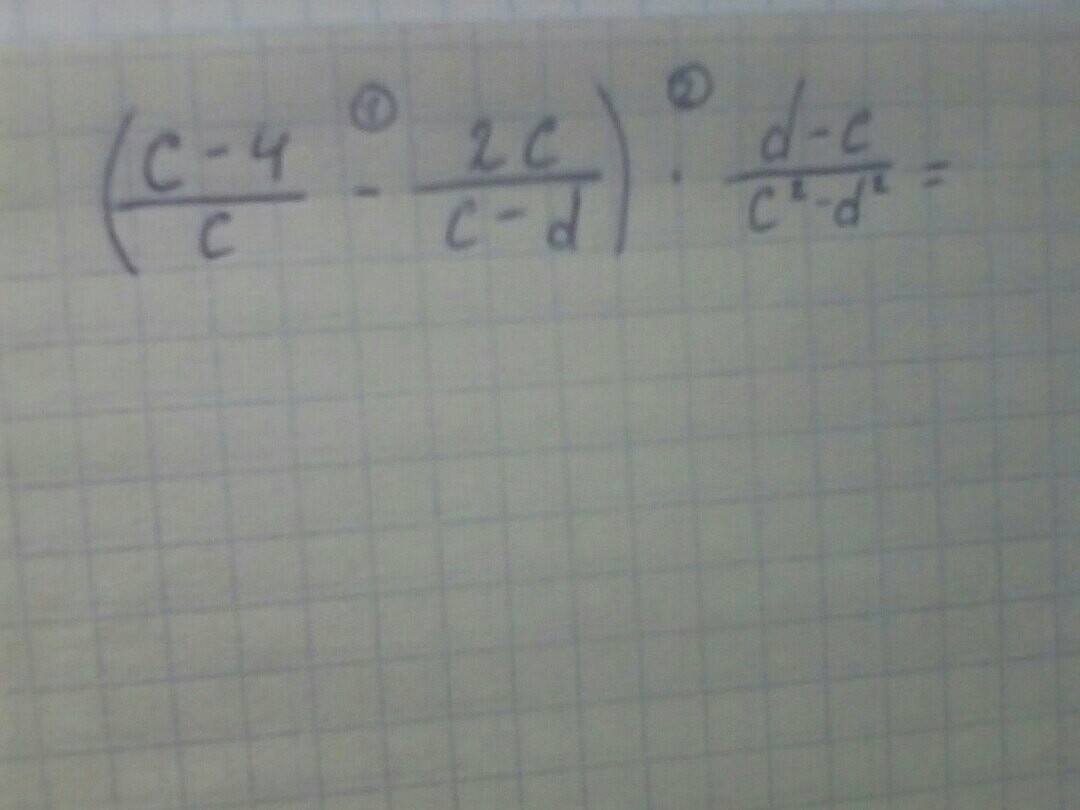 (c-4/c ① - 2c/c-d) ② · d-c/c²-d² =